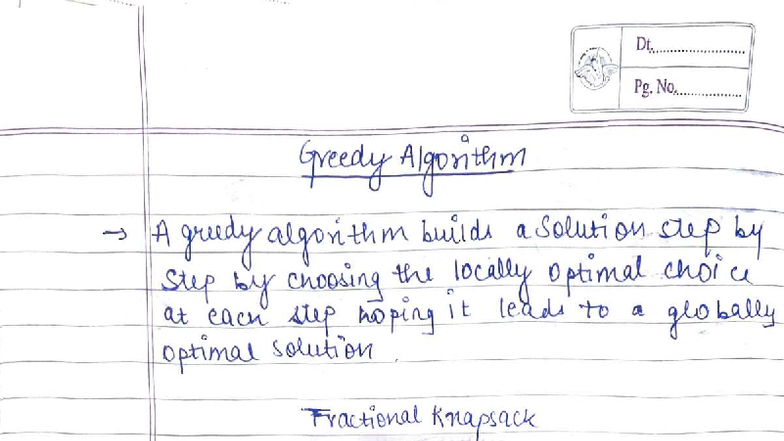 Dt.
Pg. No.
Greedy Algorithm
→ A greedy algorithm builds a solution step by
step by choosing the locally optimal choice
at each step hoping it leads to a globally
optimal solution.
Fractional Knapsack